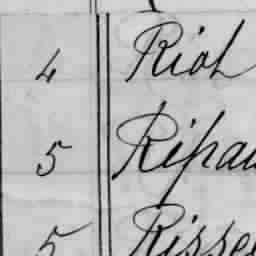 4 Riol
5 Ripau
5 Risse